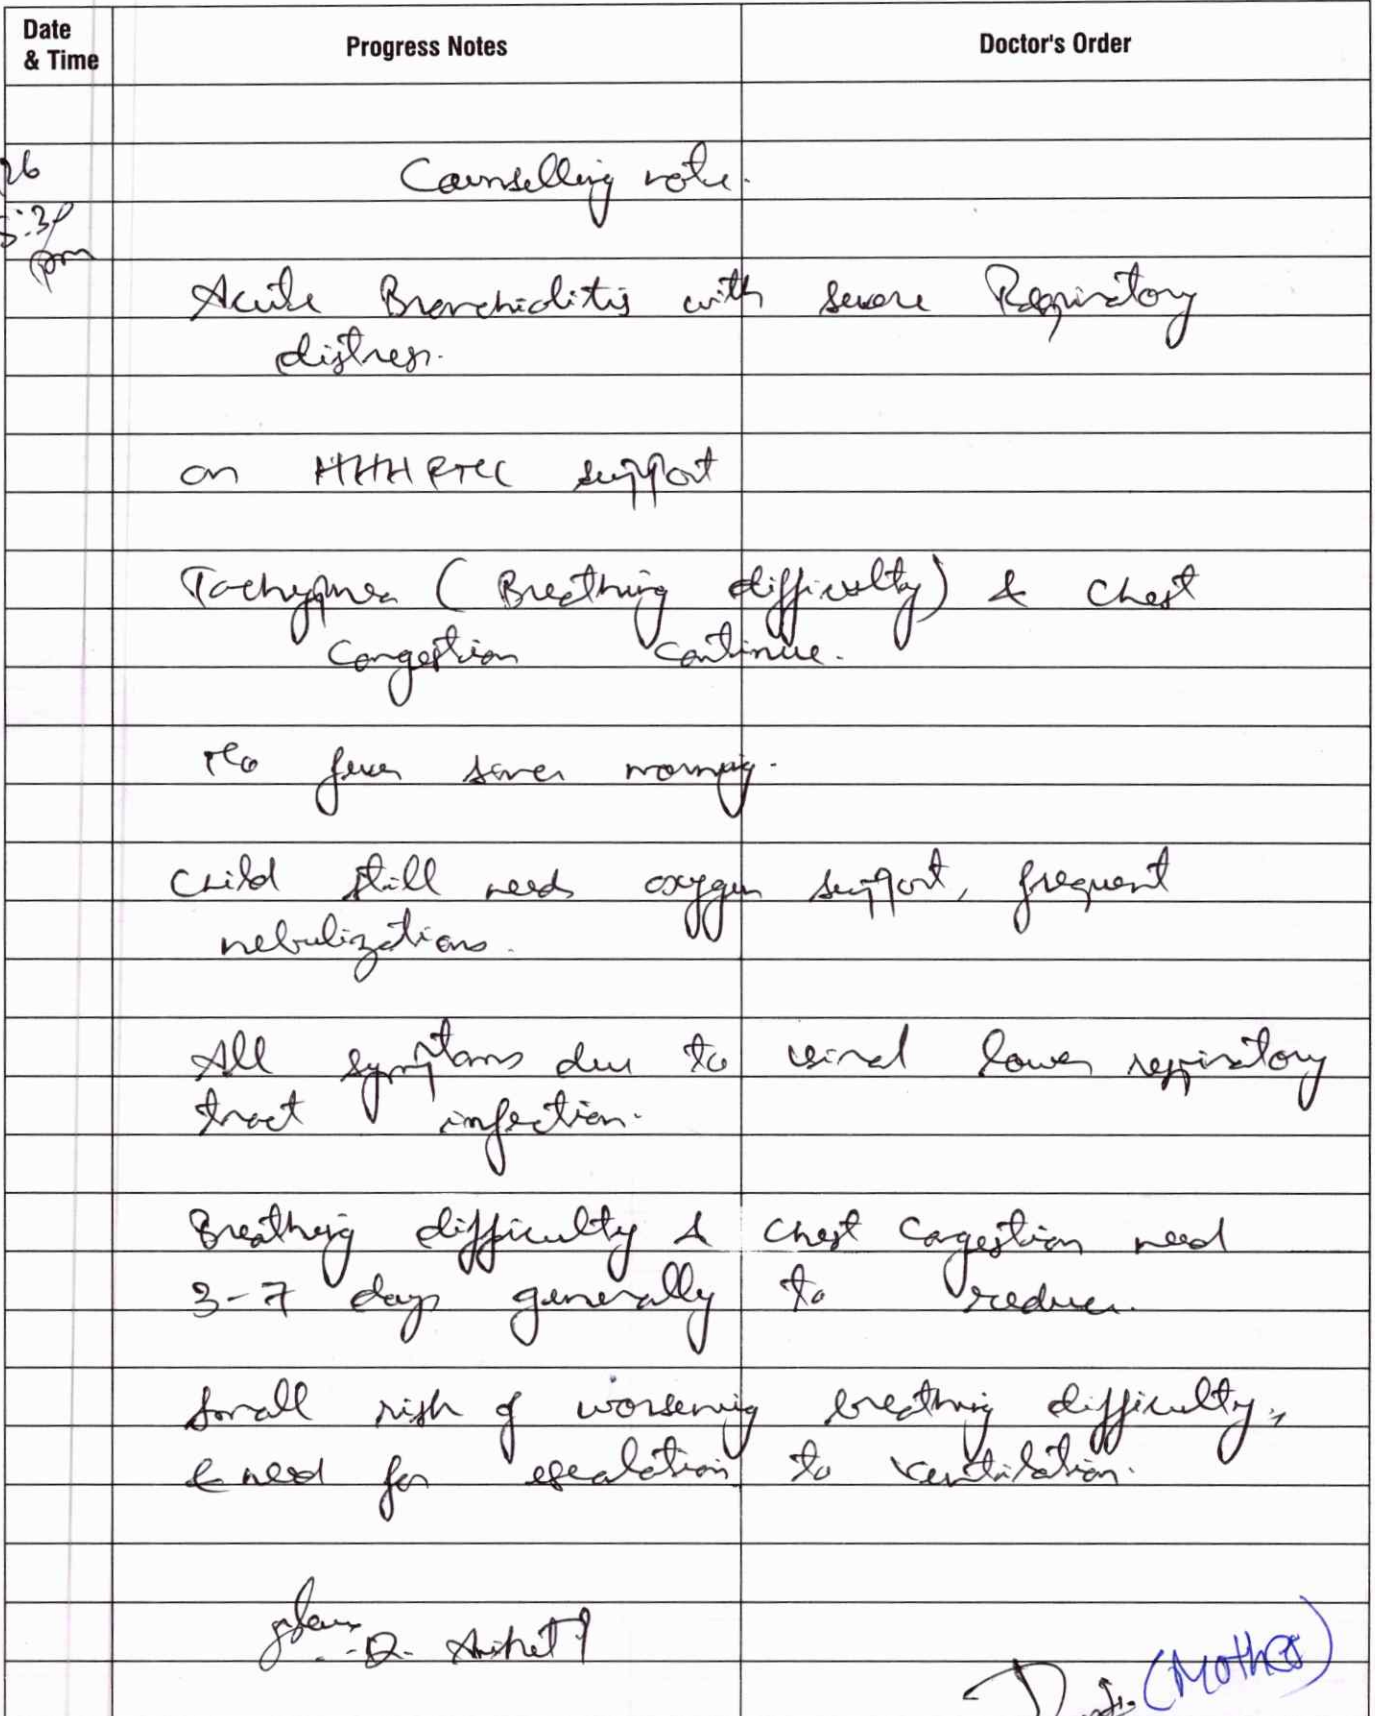 Date & Time
Progress Notes
Doctor's Order
26
Counselling note.
5:3
pm
Acute Bronchiolitis with severe Respiratory
distress.
on support
Tachypnea (Breathing difficulty) & Chest
Congestion continue.
No fever since morning.
Child still needs oxygen support, frequent
nebulizations.
All symptoms due to viral lower respiratory
tract infection.
Breathing difficulty & chest Congestion need
3-7 days generally to reduce.
Small risk of worsening breathing difficulty,
& need for escalation to ventilation.
(Mother)